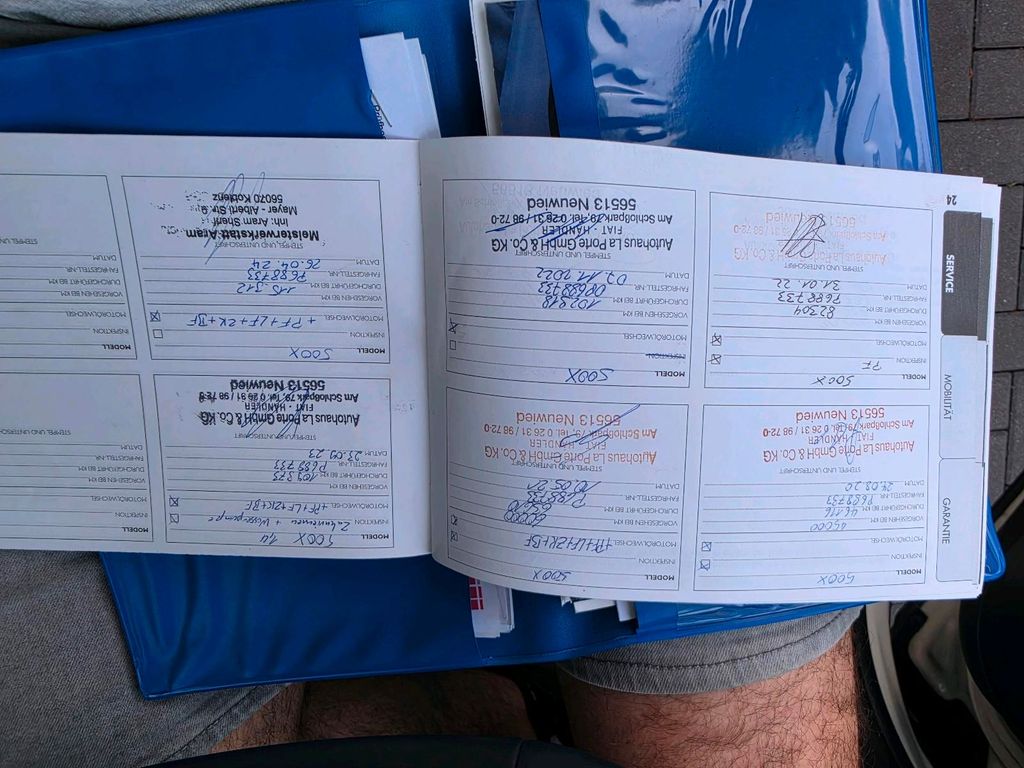 24
SERVICE
MOBILITÄT
GARANTIE
MODELL 500X
INSPEKTION
MOTORÖLWECHSEL
VORGESEHEN BEI KM 45000
DURCHGEFÜHRT BEI KM 46116
FAHRGESTELL-NR. P688733
DATUM
STEMPEL UND UNTERSCHRIFT
Autohaus La Porte GmbH & Co. KG
FIAT - HÄNDLER
Am Schloßpark 79, Tel. 0 26 31 / 98 72-0
56513 Neuwied
MODELL 500X
INSPEKTION
MOTORÖLWECHSEL +PF+LF+ZK+BF
VORGESEHEN BEI KM 60000
DURCHGEFÜHRT BEI KM
FAHRGESTELL-NR. P688733
DATUM
STEMPEL UND UNTERSCHRIFT
Autohaus La Porte GmbH & Co. KG
FIAT - HÄNDLER
Am Schloßpark 79, Tel. 0 26 31 / 98 72-0
56513 Neuwied
MODELL 500X
INSPEKTION PF
MOTORÖLWECHSEL
VORGESEHEN BEI KM
DURCHGEFÜHRT BEI KM 82304
FAHRGESTELL-NR. P688733
DATUM 31.01.22
STEMPEL UND UNTERSCHRIFT
Autohaus La Porte GmbH & Co. KG
FIAT - HÄNDLER
Am Schloßpark
56513 Neuwied
MODELL 500X
INSPEKTION
MOTORÖLWECHSEL
VORGESEHEN BEI KM
DURCHGEFÜHRT BEI KM
FAHRGESTELL-NR.
DATUM 07.11.2022
STEMPEL UND UNTERSCHRIFT
Autohaus La Porte GmbH & Co. KG
FIAT - HÄNDLER
Am Schloßpark 79, Tel. 0 26 31 / 98 72-0
56513 Neuwied
MODELL 500X
INSPEKTION Zahnriemen + Wasserpumpe
MOTORÖLWECHSEL +PF+LF+ZK+BF
VORGESEHEN BEI KM
DURCHGEFÜHRT BEI KM 109373
FAHRGESTELL-NR. P688733
DATUM
STEMPEL UND UNTERSCHRIFT
Autohaus La Porte GmbH & Co. KG
FIAT - HÄNDLER
Am Schloßpark 79, Tel. 0 26 31 / 98 72-0
56513 Neuwied
MODELL 500X
INSPEKTION
MOTORÖLWECHSEL + PF+LF+ZK+BF
VORGESEHEN BEI KM
DURCHGEFÜHRT BEI KM 115.312
FAHRGESTELL-NR. P688733
DATUM 26.04.24
STEMPEL UND UNTERSCHRIFT
Meisterwerkstatt Aram
Inh: Aram Sherif
Mayer - Alberti Str. 9
56070 Koblenz
MODELL
INSPEKTION
MOTORÖLWECHSEL
VORGESEHEN BEI KM
DURCHGEFÜHRT BEI KM
FAHRGESTELL-NR.
DATUM
STEMPEL UND UNTERSCHRIFT
MODELL
INSPEKTION
MOTORÖLWECHSEL
VORGESEHEN BEI KM
DURCHGEFÜHRT BEI KM
FAHRGESTELL-NR.
DATUM